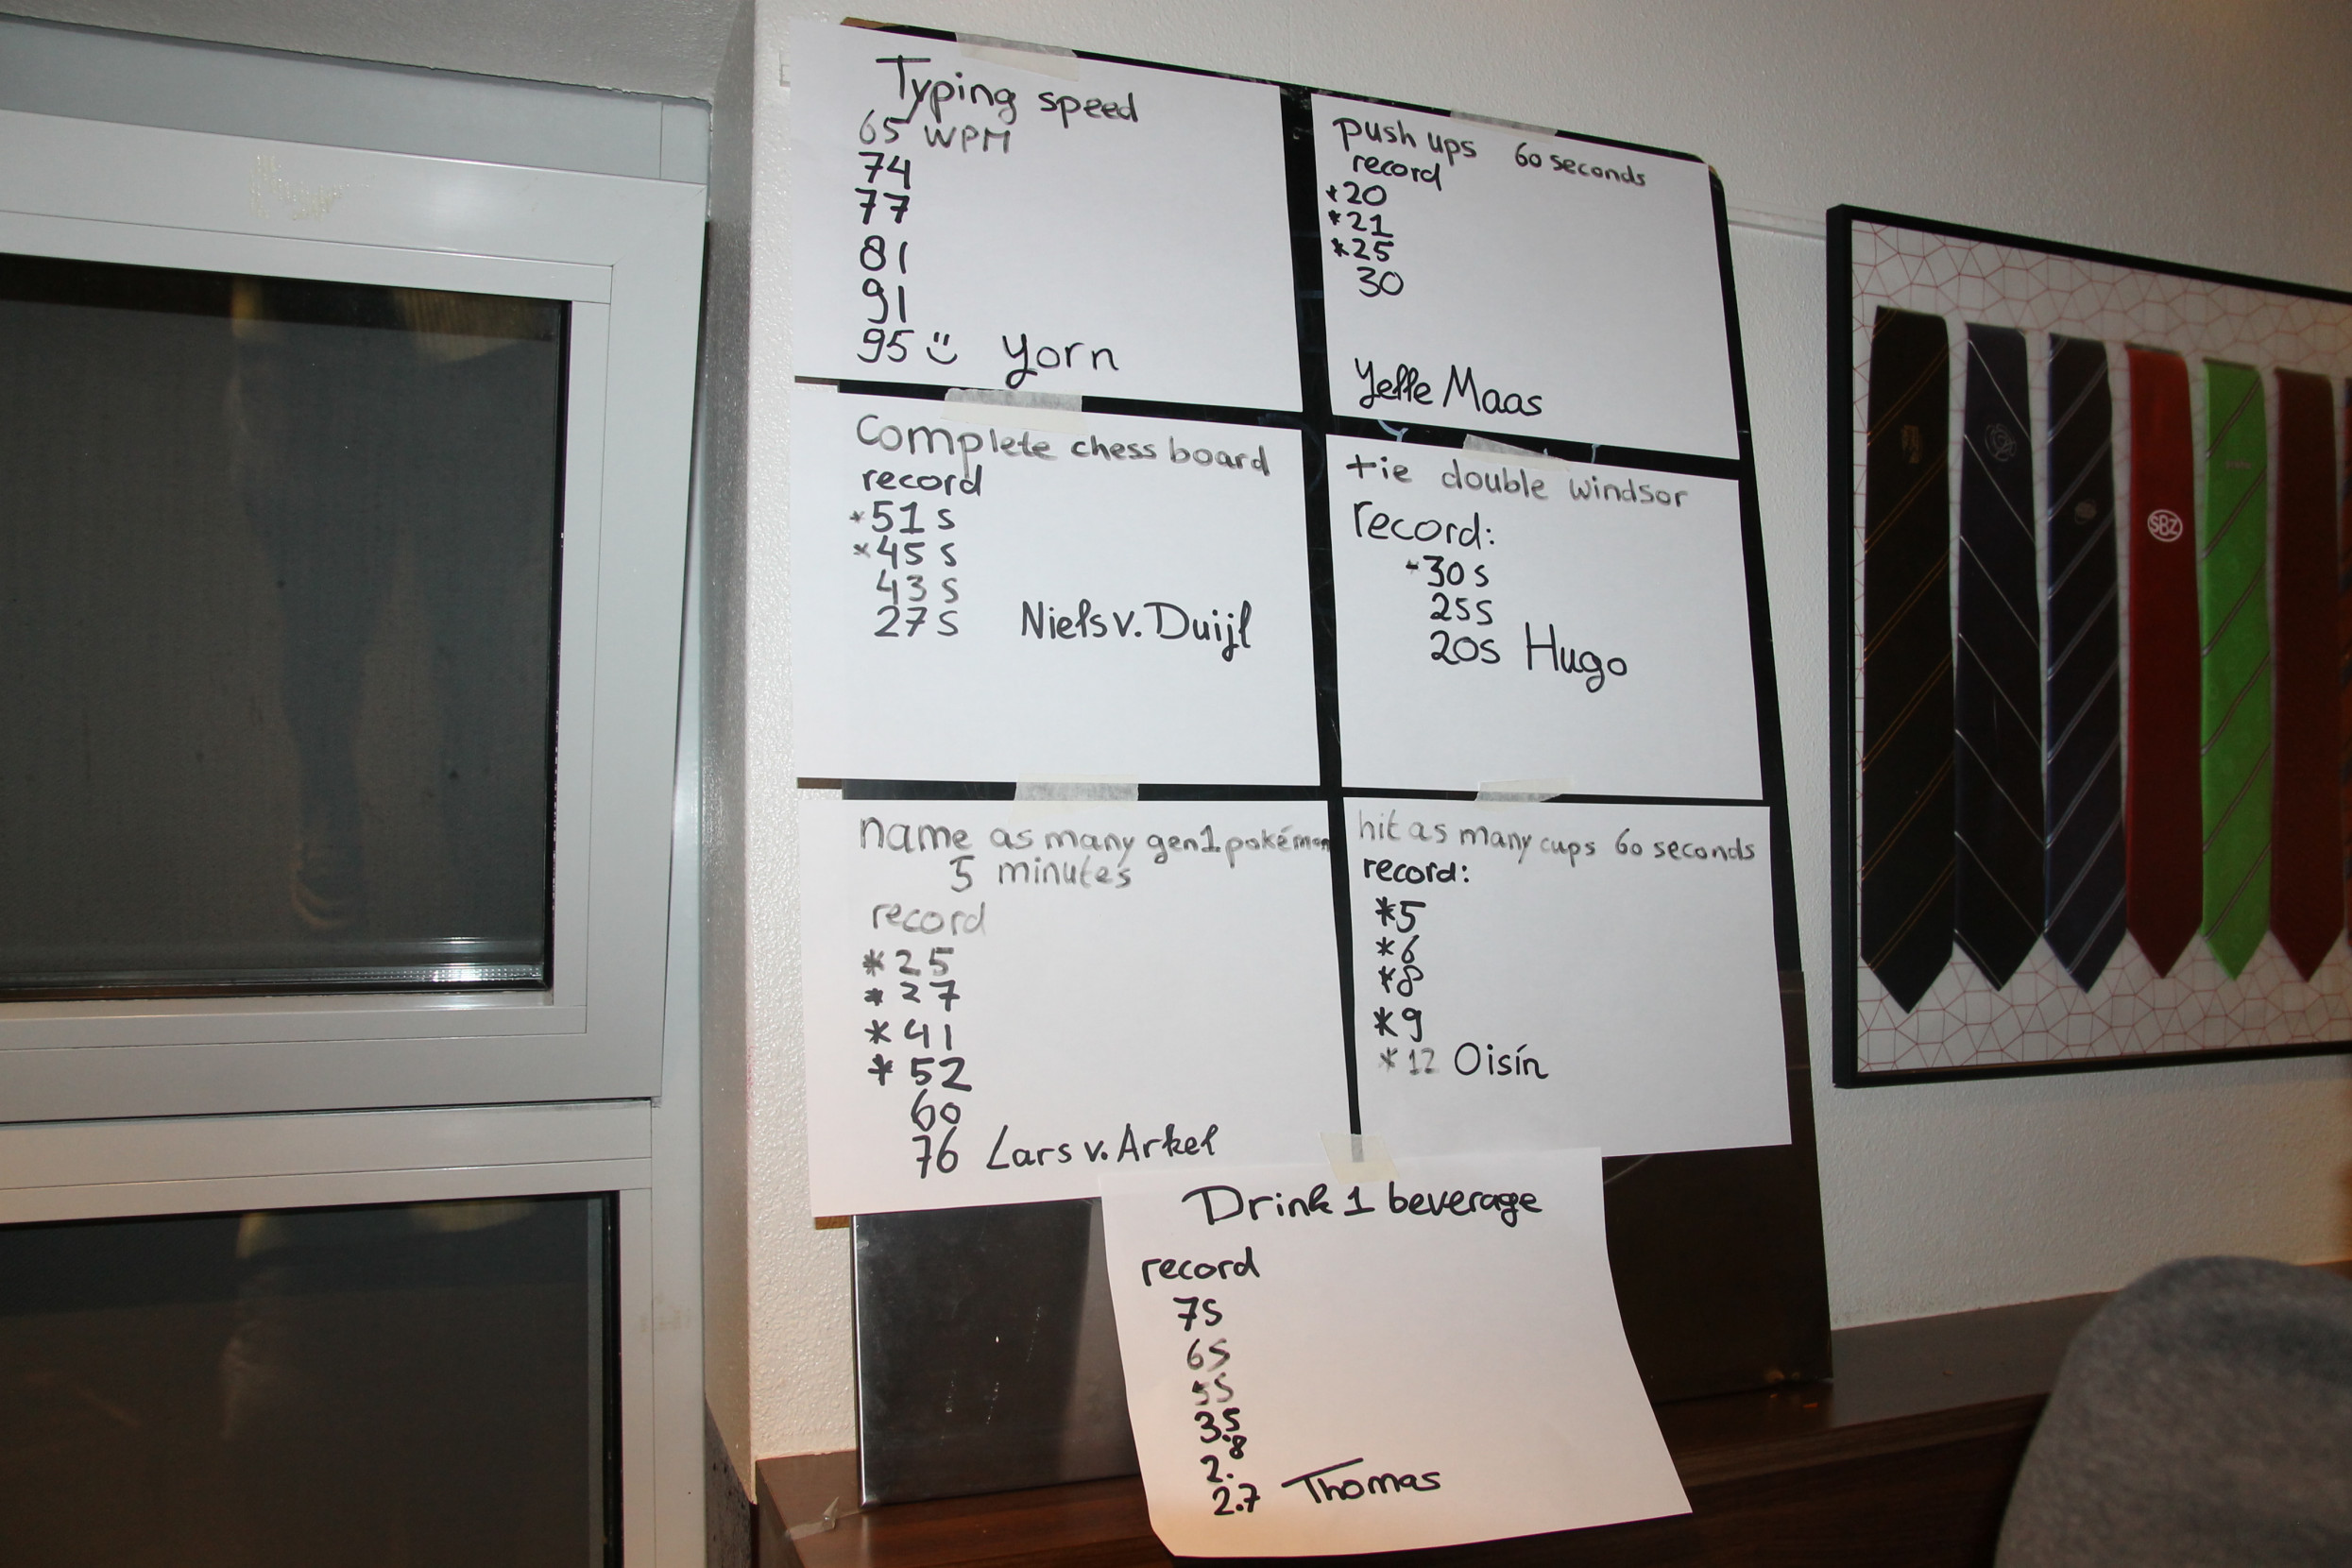 Typing speed
65 WPM
74
77
81
91
95 Yorn
push ups 60 seconds
record
*20
*21
*25
30
Yelle Maas
Complete chess board
record
*51 s
*45 s
43 s
27 s Niels v. Duijl
tie double windsor
record:
-30s
25s
20s Hugo
name as many gen1 pokémon
5 minutes
record
*25
*27
*41
*52
60
76 Lars v. Arkel
hit as many cups 60 seconds
record:
*5
*6
*8
*9
*12 Oisín
Drink 1 beverage
record
7s
6s
5s
3s
2.8
2.7 Thomas
SBZ